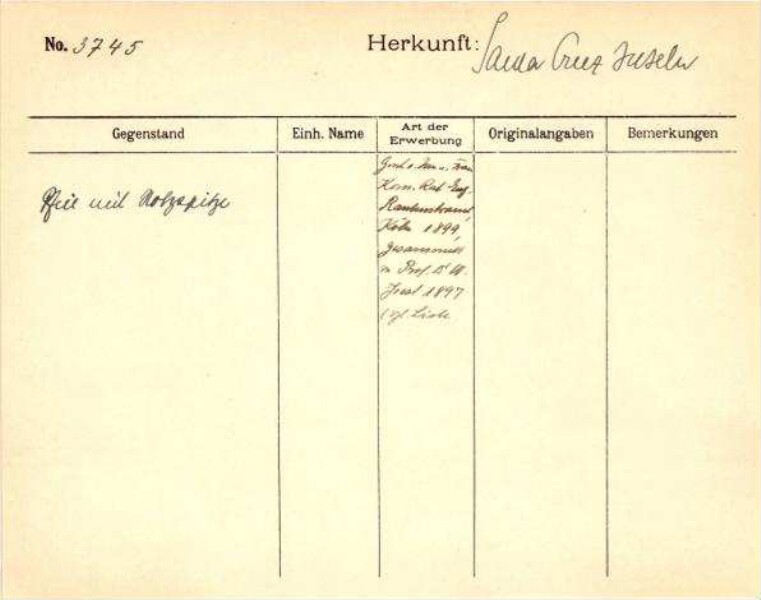 No. 3745 Herkunft: Santa Cruz Inseln
Gegenstand Einh. Name Art der Erwerbung Originalangaben Bemerkungen
Pfeil mit Holzspitze
Gesch. v. Frau
Kom. Rat Eug.
Rautenstrauch,
Köln 1899,
gesammelt
v. Prof. Dr W.
Joest 1897
(vgl. Liste